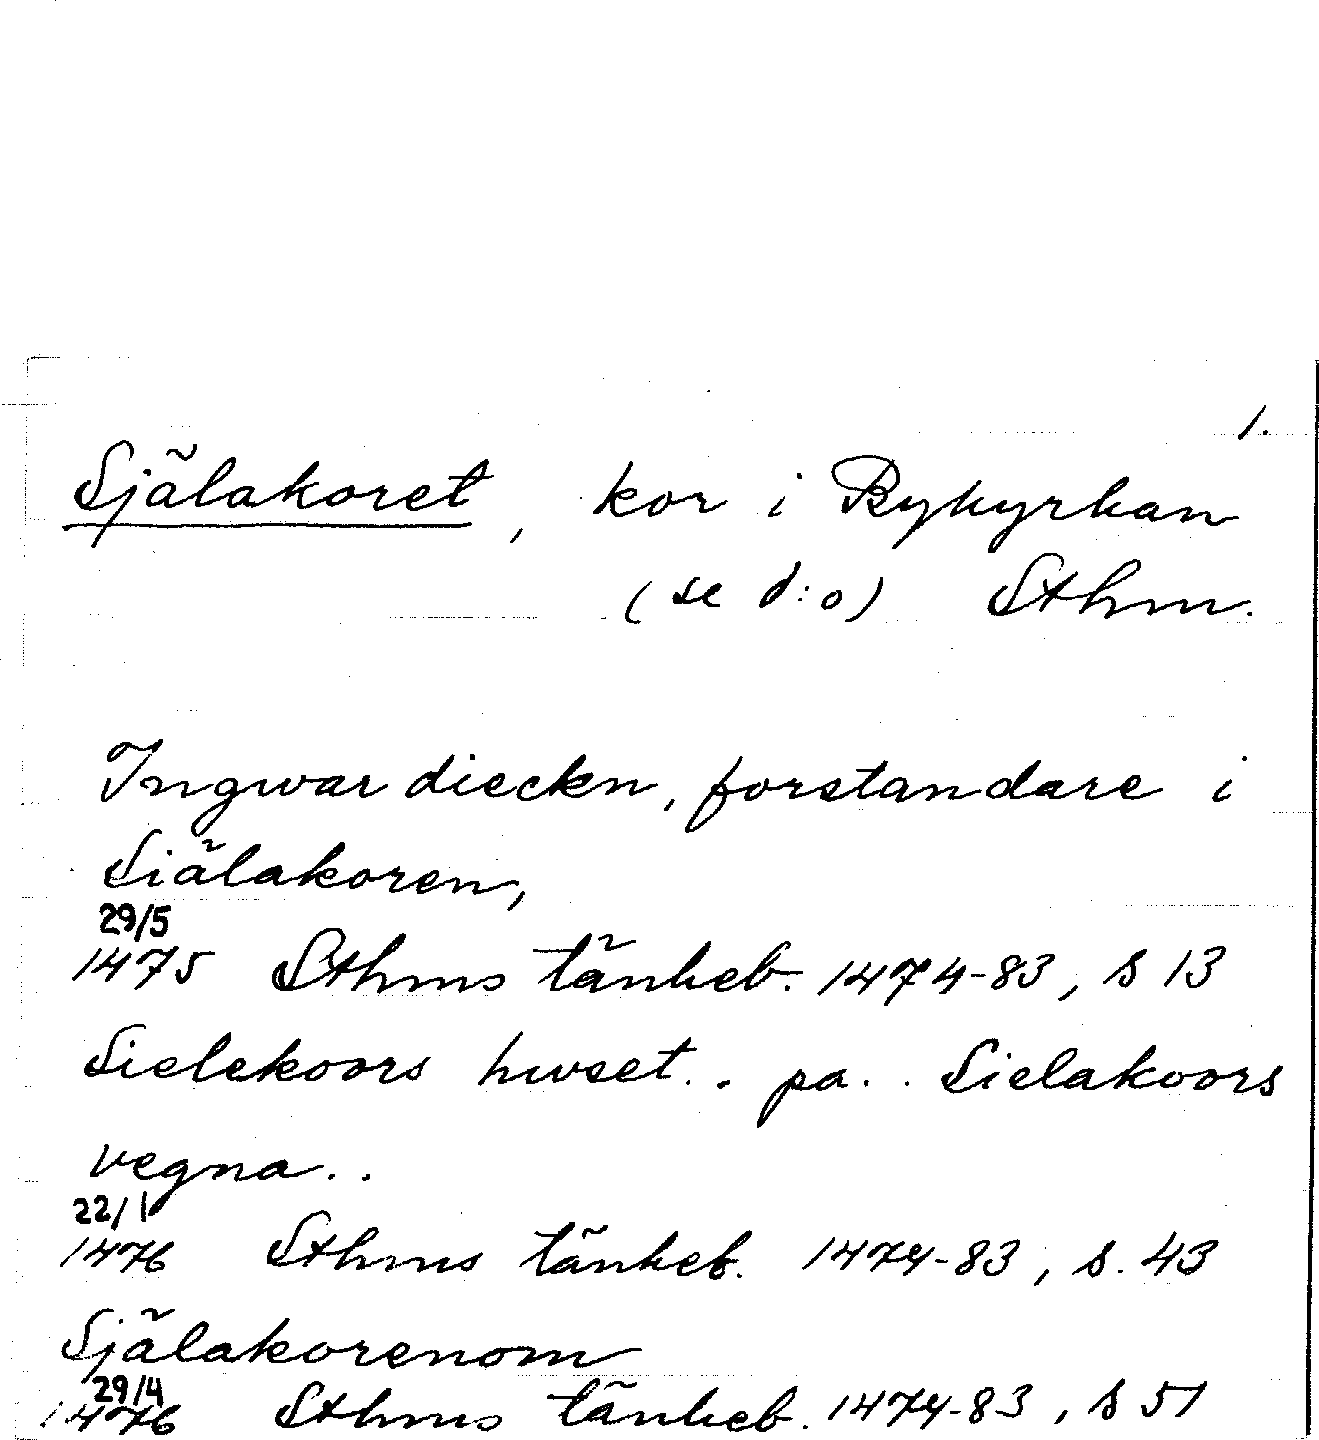 1.
Själakoret, kor i Bykyrkan
(se d:o) Sthm.
Ingwar dieckn, forstandare i
Siälakoren,
29/5
1475 Sthms tänkeb. 1474-83, s 13
Sielekoors hwset. . pa. . Sielakoors
vegna. .
22/1
1476 Sthms tänkeb. 1474-83, s. 43
Själakorenom
29/4
1476 Sthms tänkeb. 1474-83, s 51